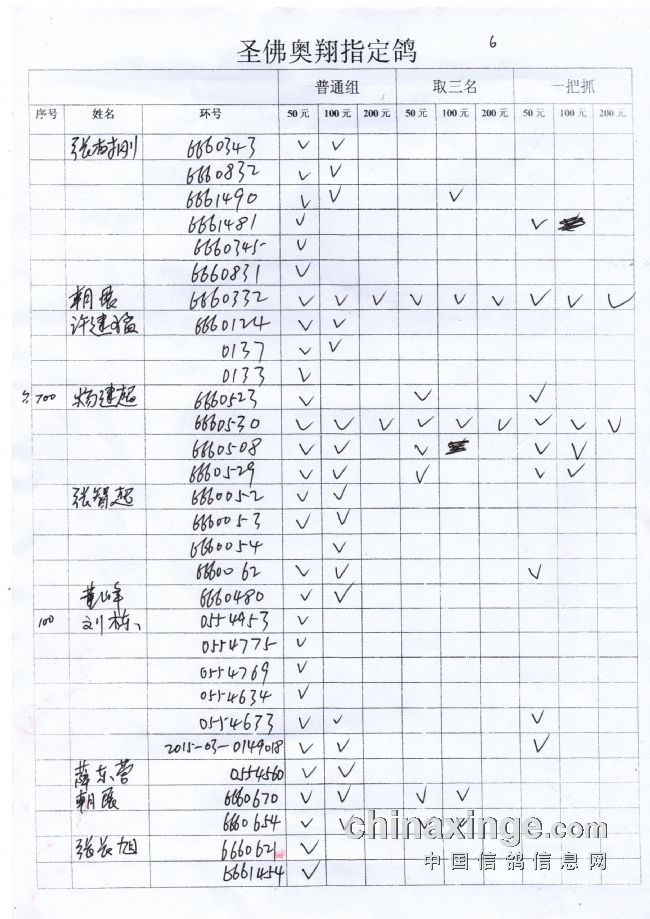 圣佛奥翔指定鸽 6
普通组 取三名 一把抓
序号 姓名 环号 50元 100元 200元 50元 100元 200元 50元 100元 200元
6660343 ✓ ✓
6660832 ✓ ✓
6661490 ✓ ✓ ✓
6661481 ✓ ✓
6660345 ✓
6660831 ✓
朝展 6660332 ✓ ✓ ✓ ✓ ✓ ✓ ✓ ✓ ✓
许建猛 6660124 ✓ ✓
0137 ✓ ✓
0133 ✓
700 杨建超 6660523 ✓ ✓ ✓
6660530 ✓ ✓ ✓ ✓ ✓ ✓ ✓ ✓ ✓
6660508 ✓ ✓ ✓ ✓ ✓
6660529 ✓ ✓ ✓ ✓ ✓
张智超 6660052 ✓ ✓
6660053 ✓ ✓
6660054 ✓
6660062 ✓ ✓ ✓
6660480 ✓ ✓
100 刘栋 0554953 ✓
0554775 ✓
0554769 ✓
0554634 ✓
0554673 ✓ ✓ ✓
2015-03-0149018 ✓ ✓ ✓
薛东营 0554560 ✓ ✓
朝展 6660670 ✓ ✓ ✓ ✓
6660654 ✓ ✓ ✓ ✓
张长旭 6660621 ✓
6661454 ✓
chinaxinge.com
中国信鸽信息网